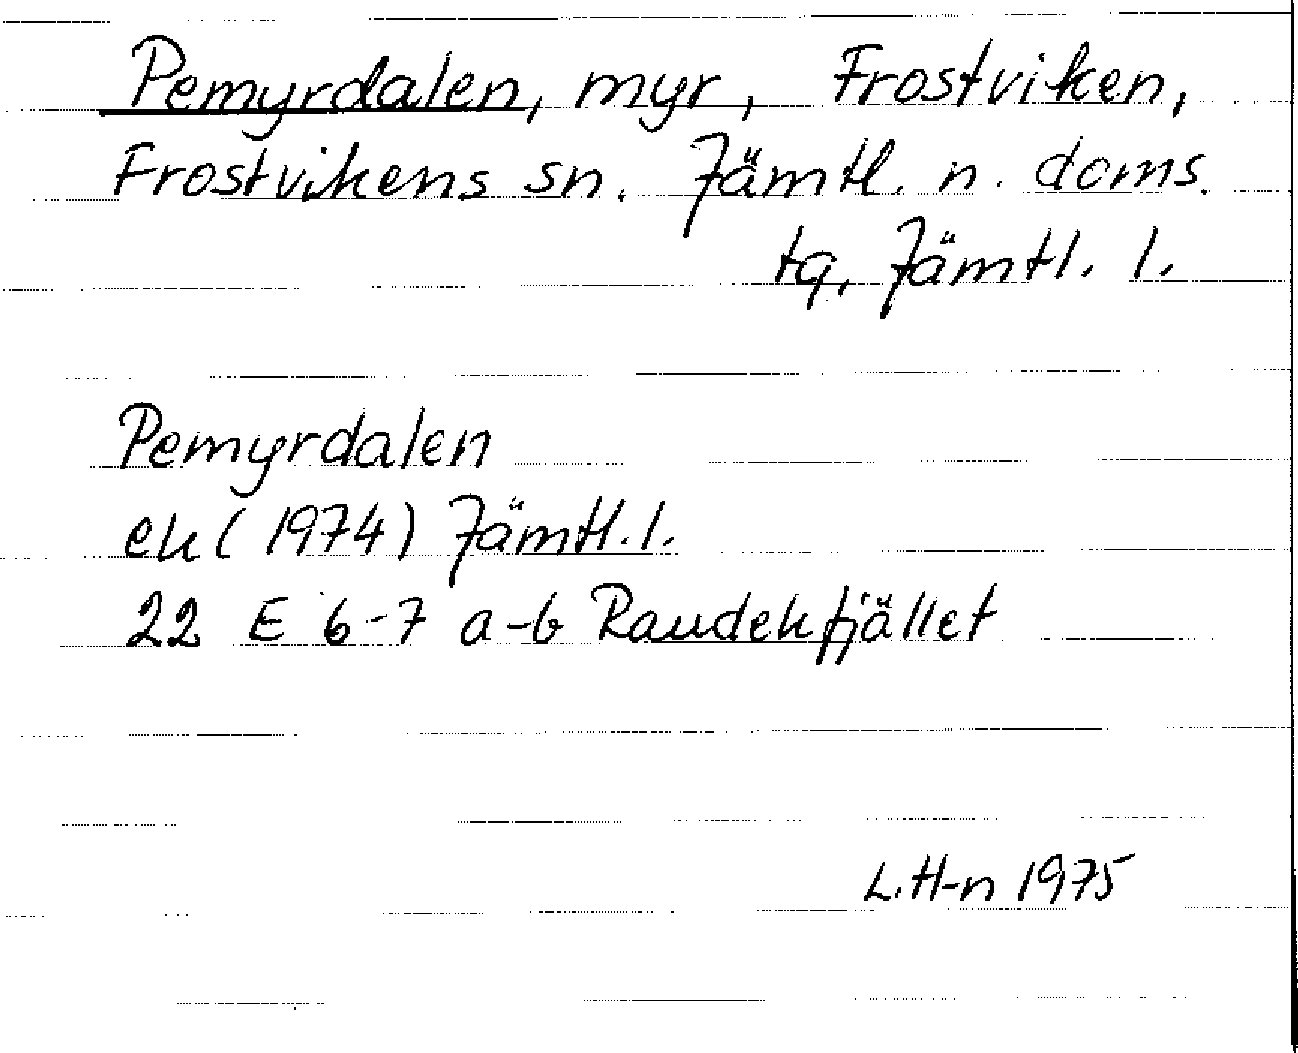 Pemyrdalen, myr, Frostviken,
Frostvikens sn. Jämtl. n. doms.
tg, Jämtl. l.
Pemyrdalen
ek (1974) Jämtl. l.
22 E 6-7 a-b Raudekfjället
L.H-n 1975